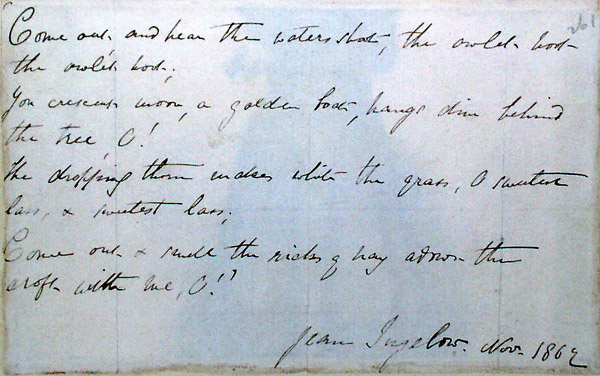 261
Come out and hear the waters shoot, the owlet hoot
the owlet hoot;
Yon crescent moon, a golden boat, hangs dim behind
the tree, O!
The dropping thorn makes white the grass, O sweetest
lass, & sweetest lass;
Come out & smell the ricks of hay adown the
croft with me, O!"
Jean Ingelow. Nov. 186